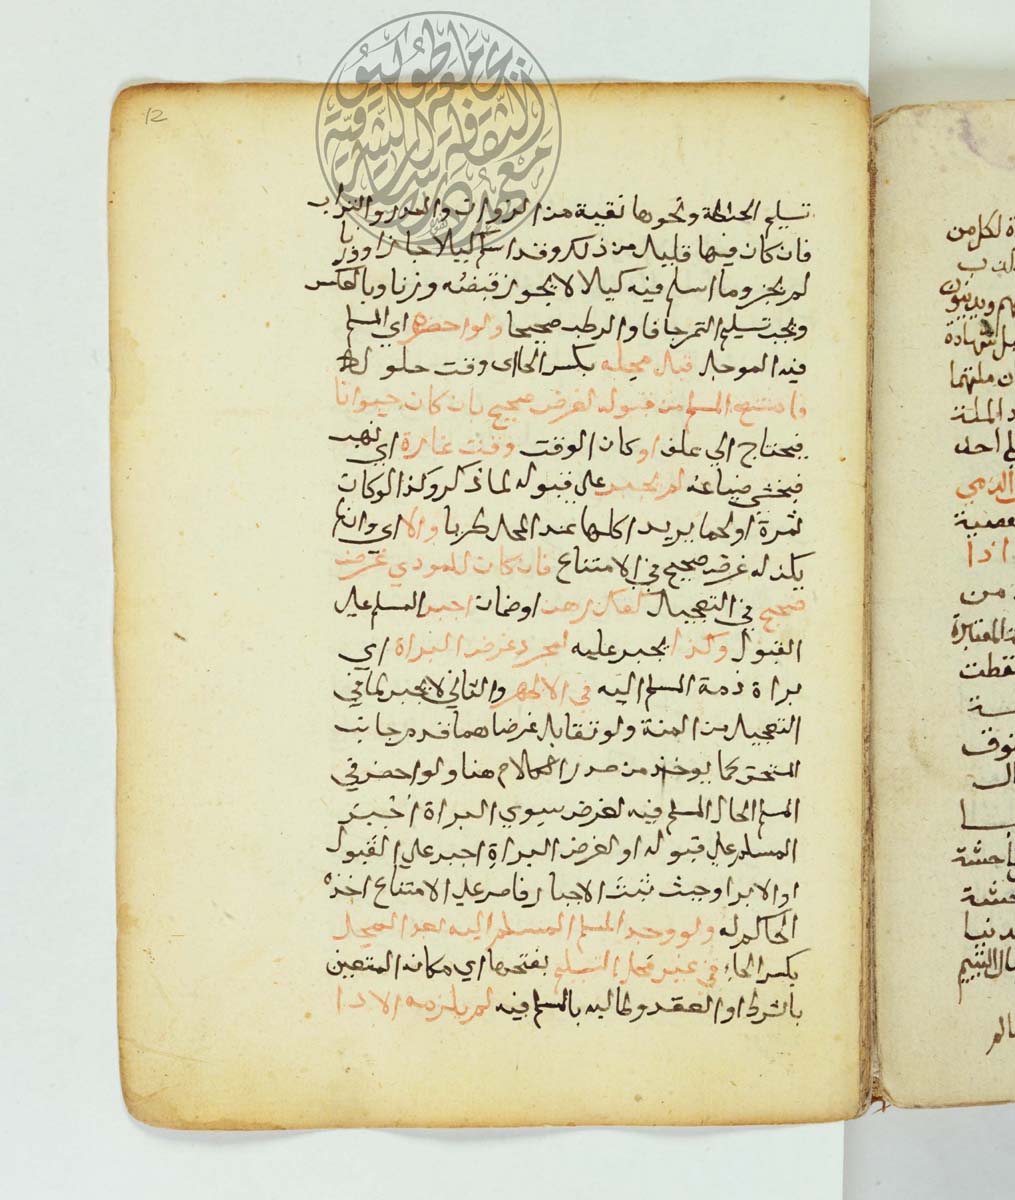 12
تسليم الحنطة ونحوها نقية من الزوان والمدر والتراب
فان كان فيها قليل من ذلك وقد اسلم كيلا جاز او وزنا
لم يجز وما اسلم فيه كيلا لا يجوز قبضه وزنا وبالعكس
ويجب تسليم التمر جافا والرطب صحيحا ولو احضره اي المسلم
فيه الموجل قبل محله بكسر الحا اى وقت حلوله
وامتنع المسلم من قبوله لغرض صحيح بان كان حيوانا
فيحتاج الي علف او كان الوقت وقت غارة اي نهب
فيخشي ضياعه لم يجبر علي قبوله لما ذكر وكذا لو كان
ثمرة او لحما يريد اكلها عند المحل طريا والا اي وان لم
يكن له غرض صحيح في الامتناع فان كان للمودي غرض
صحيح في التعجيل كفك رهن او ضمان اجبر المسلم علي
القبول وكذا يجبر عليه لمجرد غرض البراة اي
براة ذمة المسلم اليه في الاظهر والثاني لا يجبر لما في
التعجيل من المنة ولو تقابل غرضاهما قدم جانب
المستحق كما يوخذ من صدر الكلام هنا ولو احضر في
المسلم الحال المسلم فيه لغرض سوي البراة اجبر
المسلم علي قبوله او لغرض البراة اجبر علي القبول
او الابرا وحيث ثبت الاجبار فاصر علي الامتناع اخذه
الحاكم له ولو وجد المسلم المسلم اليه بعد المحل
بكسر الحاء في غير محل التسليم بفتحها اي مكانه المتعين
بالشرط او العقد وطالبه بالمسلم فيه لم يلزمه الادا